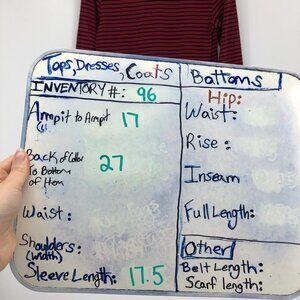 Tops, Dresses, Coats
INVENTORY #: 96
Armpit to Armpit 17
Back of Collar
To Bottom
of Hem
27
Waist:
Shoulders:
(width)
Sleeve Length: 17.5
Bottoms
Hip:
Waist:
Rise:
Inseam
Full Length:
Other
Belt Length:
Scarf length: